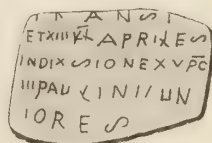 ITANSI
ETXIII KL APRILES
INDIXSIONEXV PC
IIIPAULINIIUN
IORES